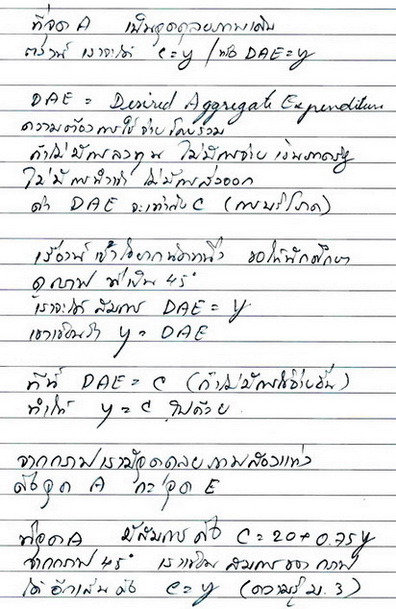 ที่จุด A เป็นจุดดุลยภาพเดิม
ตรงนี้ เราจะได้ C=y หรือ DAE=y
DAE = Desired Aggregate Expenditure
ความต้องการใช้จ่ายโดยรวม
ถ้าไม่มีการลงทุน ไม่มีการจ่ายเงินภาครัฐ
ไม่มีการนำเข้า ไม่มีการส่งออก
ค่า DAE จะเท่ากับ C (การบริโภค)
เรื่องนี้ เข้าใจยากนิดหนึ่ง ขอให้นักศึกษา
ดูกราฟ ที่เป็น 45°
เราจะได้ สมการ DAE = y
เขาเขียนว่า y = DAE
ทีนี้ DAE = C (ถ้าไม่มีการใช้จ่ายอื่น)
ทำให้ y = C ไปด้วย
จากกราฟเรามีจุดดุลยภาพสองแห่ง
คือจุด A กะจุด E
ที่จุด A มีสมการ คือ C = 20 + 0.75y
จากกราฟ 45° เราเขียน สมการของกราฟ
ได้อีกเส้น คือ C = y (ความรู้ ม.3)